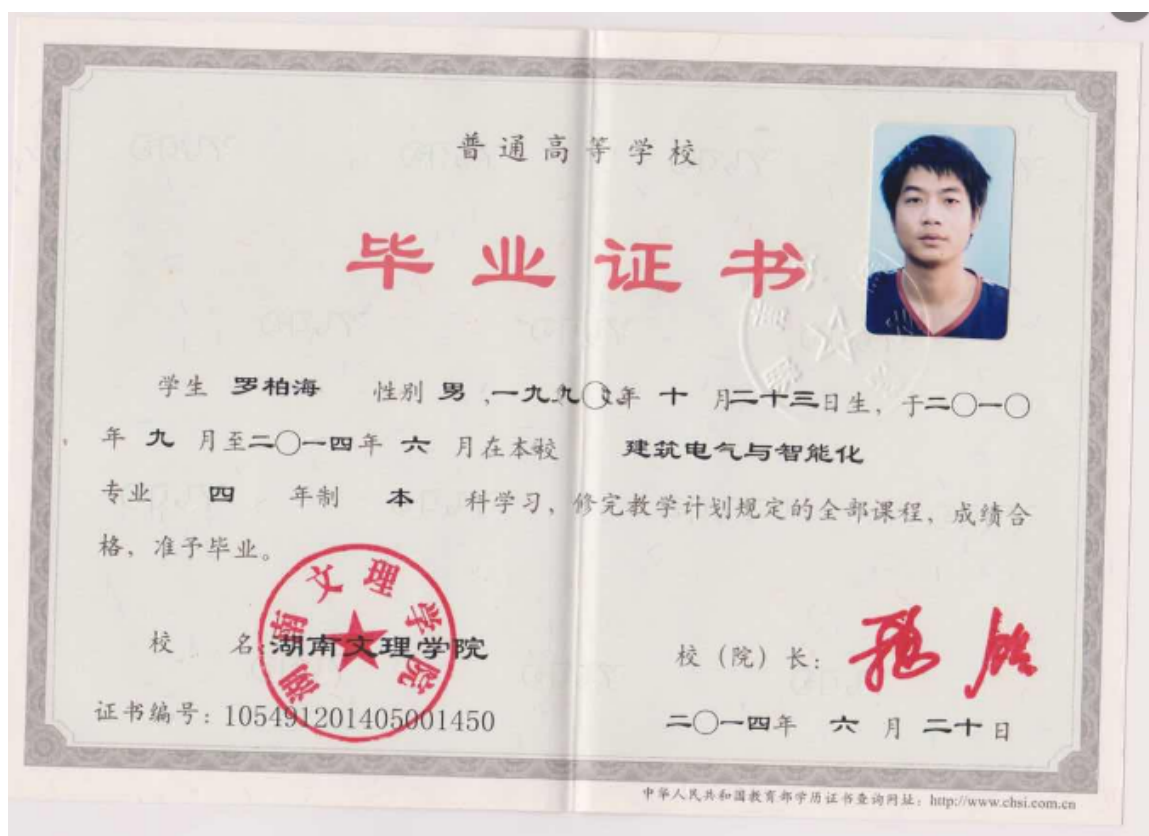 普通高等学校
毕业证书
学生 罗柏海 性别 男 ,一九九〇年 十 月二十三日生，于二〇一〇
年 九 月至二〇一四年 六 月在本校 建筑电气与智能化
专业 四 年制 本 科学习，修完教学计划规定的全部课程，成绩合
格，准予毕业。
湖南文理学院
校 名:湖南文理学院
校（院）长：
证书编号：105491201405001450
二〇一四年 六 月 二十日
中华人民共和国教育部学历证书查询网址：http://www.chsi.com.cn